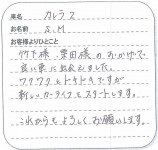 車名 カレラ2
お名前 S.M
お客様よりひとこと
竹下様、栗田様のおかげで、
良い車に出会えました。
ワクワクとドキドキですが
新しいカーライフをスタートします。
これからもよろしくお願いします。